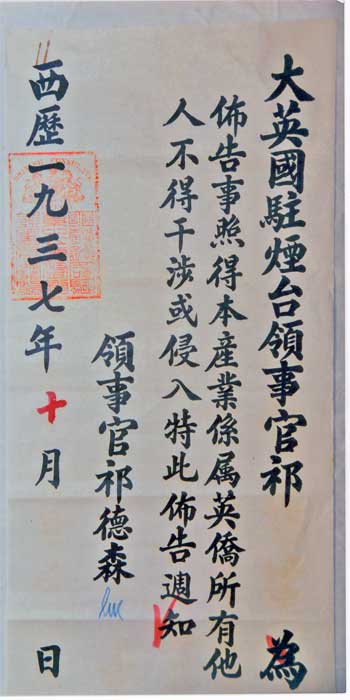 大英國駐煙台領事官祁 為
佈告事照得本產業係属英僑所有他
人不得干涉或侵入特此佈告週知
領事官祁德森
西歷一九三七年十月 日